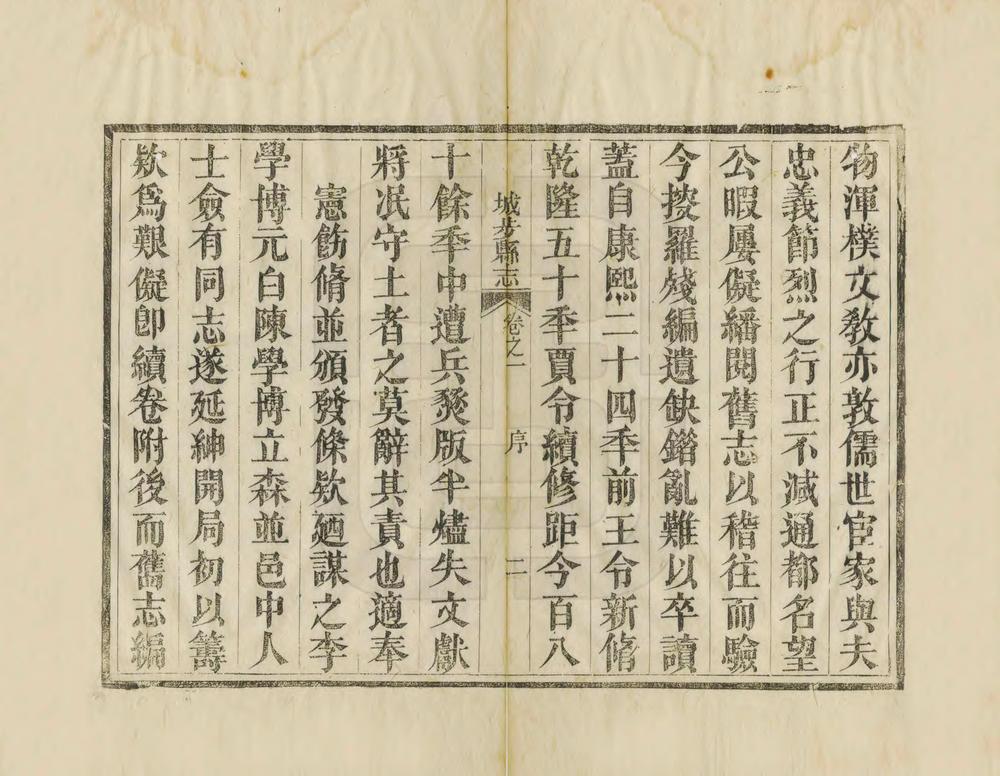 物渾樸文敎亦敦儒世宦家與夫
忠義節烈之行正不減通都名望
公暇屢儗繙閱舊志以稽往而驗
今搜羅殘編遺缺錯亂難以卒讀
蓋自康熙二十四秊前王令新脩
乾隆五十秊賈令續修距今百八
城步縣志 卷之一 序 二
十餘秊中遭兵燹版半燼失文獻
將泯守土者之莫辭其責也適奉
憲飭脩並頒發條欵廼謀之李
學博元白陳學博立森並邑中人
士僉有同志遂延紳開局初以籌
欵爲艱儗卽續卷附後而舊志編